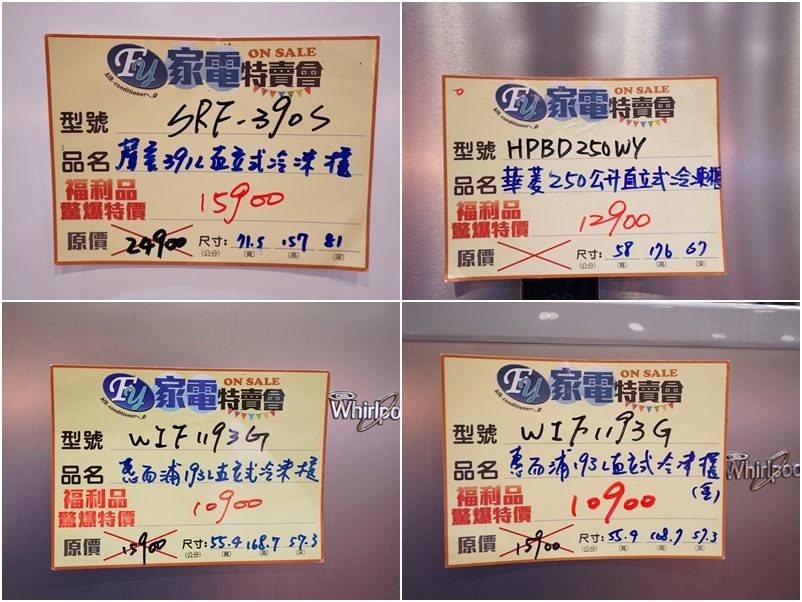 FY 家電特賣會 ON SALE
AIR-conditioner
型號 SRF-390S
品名 391L直立式冷凍櫃
福利品
驚爆特價 15900
原價 24900 尺寸: 71.5 157 81
(公分) (寬) (高) (深)
FY 家電特賣會 ON SALE
AIR-conditioner
型號 HPBD250WY
品名 華菱250公升直立式冷凍櫃
福利品
驚爆特價 12900
原價 尺寸: 58 176 67
(公分) (寬) (高) (深)
FY 家電特賣會 ON SALE
AIR-conditioner
型號 WIF1193G
品名 惠而浦193L直立式冷凍櫃
福利品
驚爆特價 10900
原價 15900 尺寸: 55.9 168.7 57.3
(公分) (寬) (高) (深)
Whirlpoo
FY 家電特賣會 ON SALE
AIR-conditioner
型號 WIF1193G
品名 惠而浦193L直立式冷凍櫃
福利品
驚爆特價 10900
原價 15900 尺寸: 55.9 168.7 57.3
(公分) (寬) (高) (深)
Whirlpoo